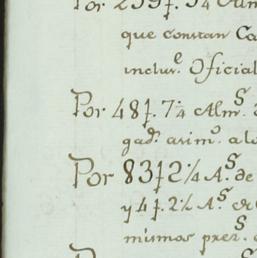 Por 259f. 54 Alm
que constan Ca
inclus.e Oficial
Por 48f. 7¼ Alm.s
gad.s asim.o a lo
Por 83f 2¼ A.s de
y 4f. 2½ A.s de
mismos prez.s